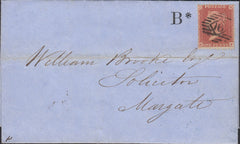 B*
William Brooke Esqr
Solicitor
Margate